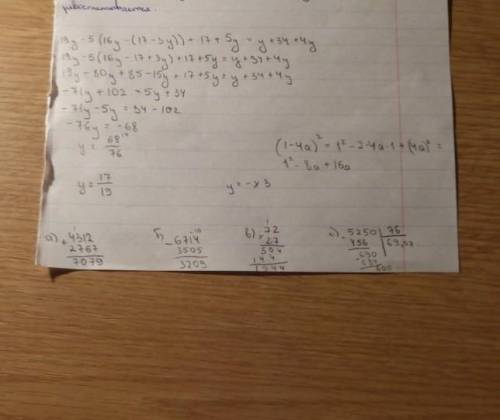 19y - 5(16y - (17 - 3y)) + 17 + 5y = y + 34 + 4y
19y - 5(16y - 17 + 3y) + 17 + 5y = y + 34 + 4y
19y - 80y + 85 - 15y + 17 + 5y = y + 34 + 4y
-71y + 102 = 5y + 34
-71y - 5y = 34 - 102
-76y = -68
y = 68/76
(1-4a)² = 1² - 2·4a·1 + (4a)² =
1² - 8a + 16a
y = 17/19
y = -x3
а) + 4312
2767
7079
б) - 6714
3505
3209
в) × 72
27
504
144
1944
5250 | 76
456
690
684
600